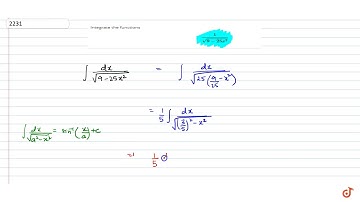 2231
Integrate the functions
1/√(9-25x²)
∫ dx/√(9-25x²) = ∫ dx/√(25(9/25-x²))
= 1/5 ∫ dx/√((3/5)²-x²)
∫ dx/√(a²-x²) = sin⁻¹(x/a)+c
= 1/5